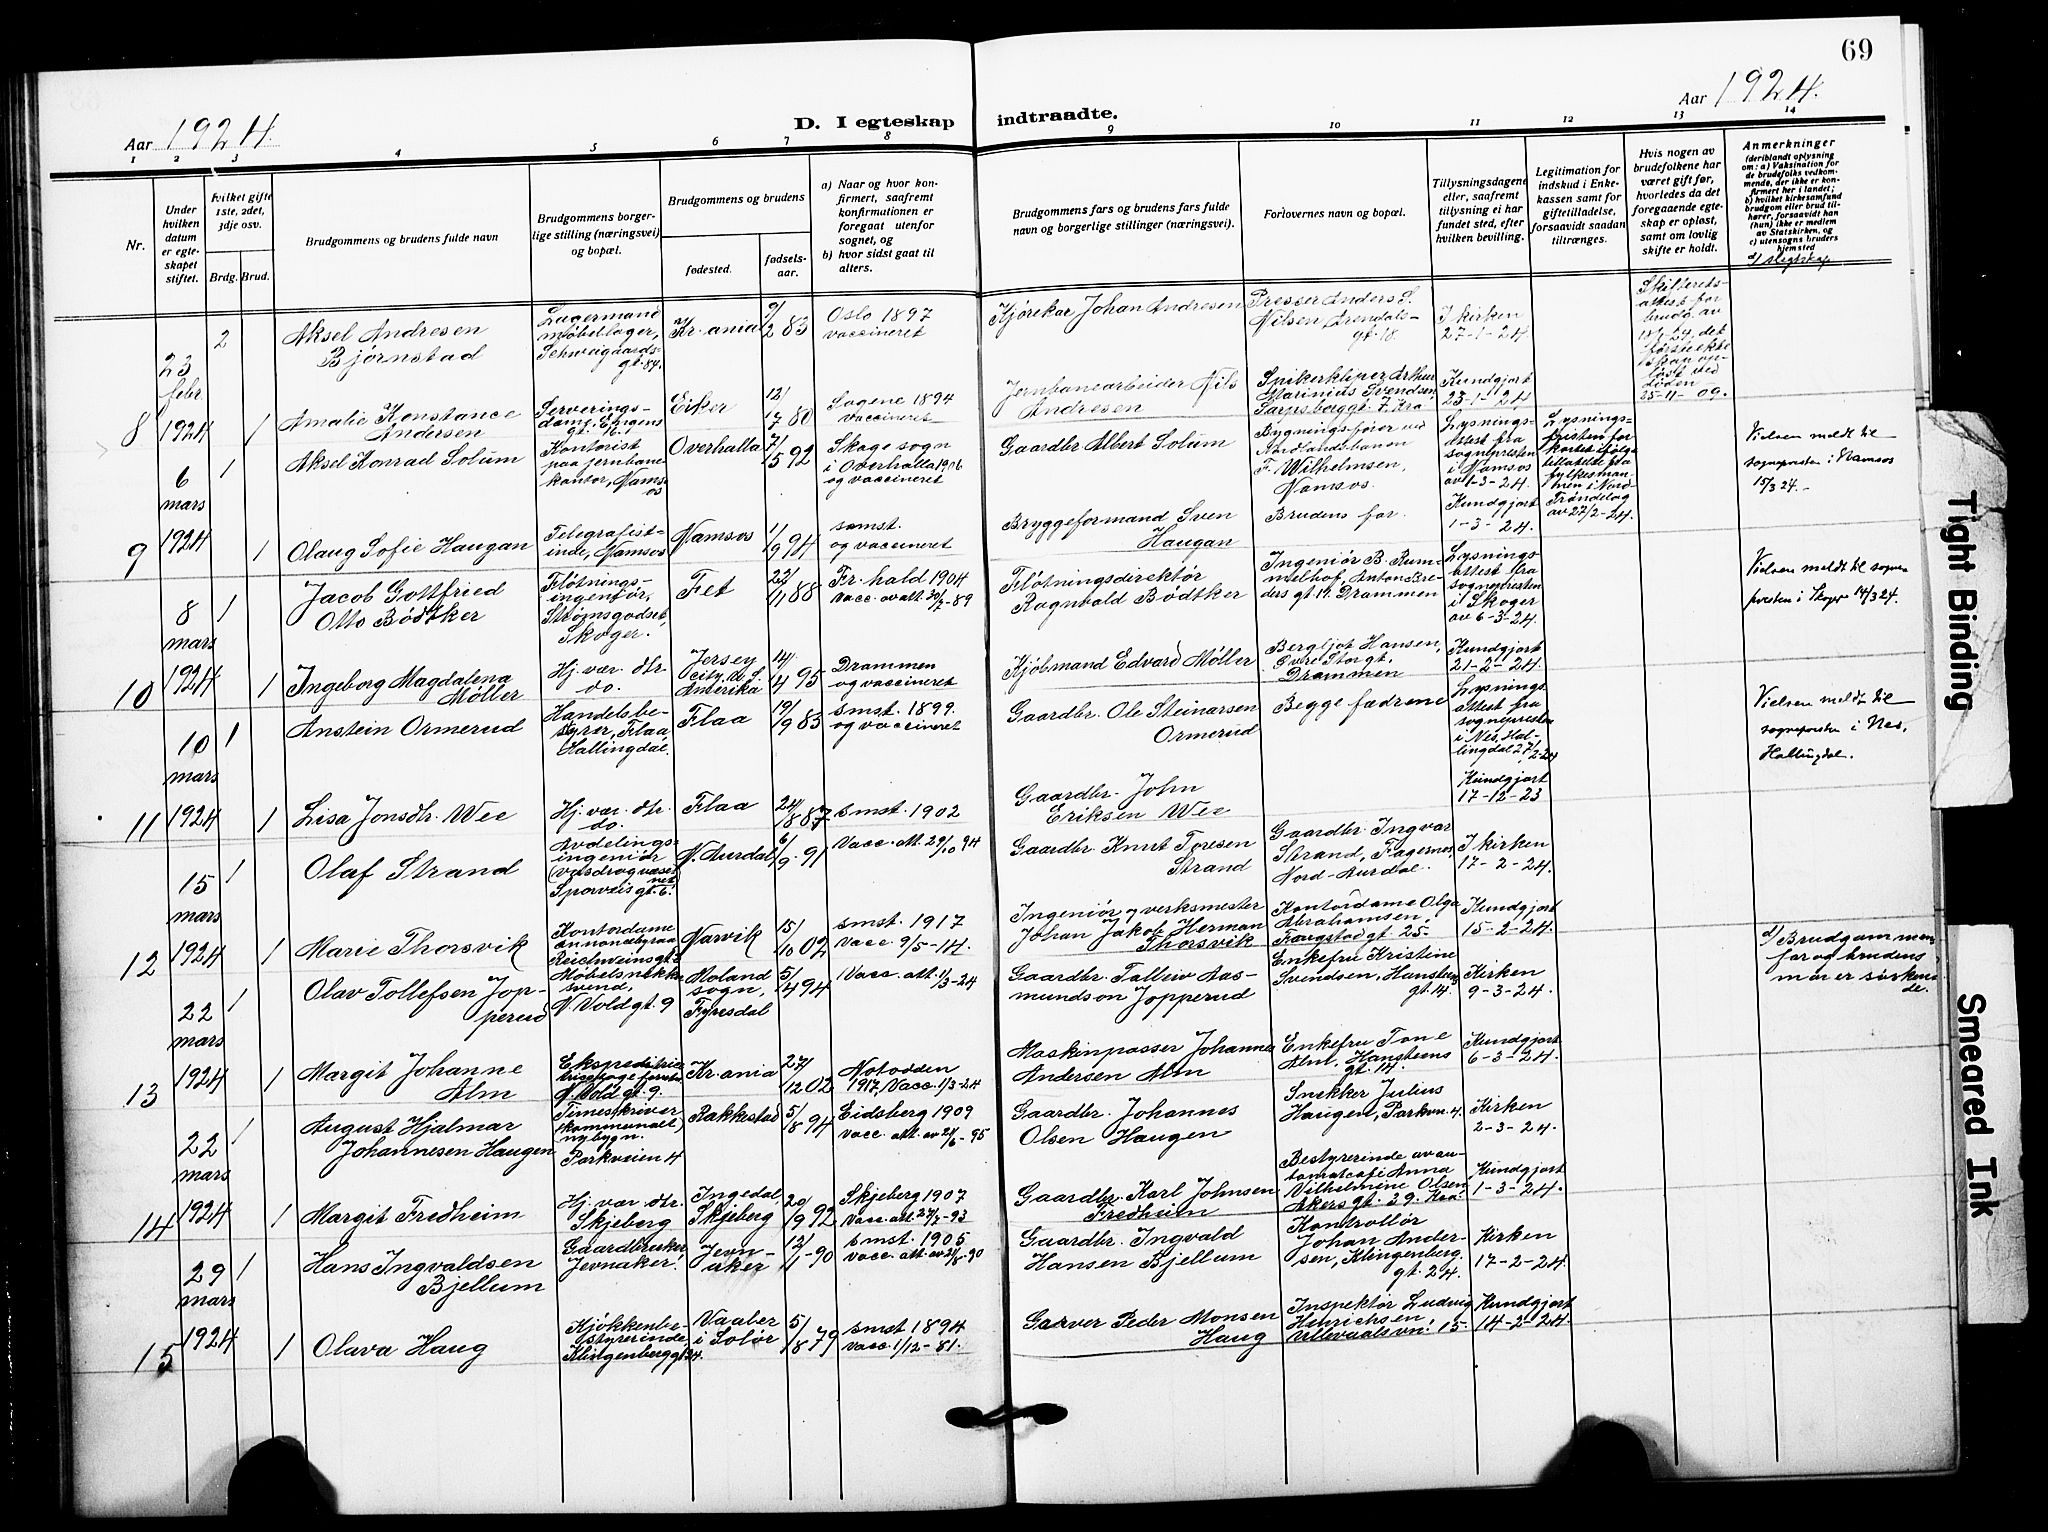 69
Aar 1924.
D. I egteskap
indtraadte.
Aar 1924.
1 2 3 4 5 6 7 8 9 10 11 12 13 14
Nr.
Under
hvilken
datum
er egte-
skapet
stiftet.
hvilket gifte
1ste, 2det,
3dje osv.
Brdg. Brud.
Brudgommens og brudens fulde navn
Brudgommens borger-
lige stilling (næringsvei)
og bopæl.
Brudgommens og brudens
fødested.
fødsels-
aar.
a) Naar og hvor kon-
firmert, saafremt
konfirmationen er
foregaat utenfor
sognet, og
b) hvor sidst gaat til
alters.
Brudgommens fars og brudens fars fulde
navn og borgerlige stillinger (næringsvei).
Forlovernes navn og bopæl.
Tillysningsdagene
eller, saafremt
tillysning ei har
fundet sted, efter
hvilken bevilling.
Legitimation for
indskud i Enke-
kassen samt for
giftetilladelse,
forsaavidt saadan
tiltrænges.
Hvis nogen av
brudefolkene har
været gift før,
hvorledes da det
foregaaende egte-
skap er opløst,
samt om lovlig
skifte er holdt.
Anmerkninger
(deriblandt oplysning
om: a) Vaksination for
de brudefolks vedkom-
mende, der ikke er kon-
firmert her i landet;
b) hvilket kirkesamfund
brudgom eller brud til-
hører, forsaavidt han
(hun) ikke er medlem
av Statskirken, og
c) utensogns bruders
hjemsted
d) slegtskap
8
23
febr.
1924
2
Aksel Andresen
Bjørnstad
Lagermand
møbellager,
Schweigaards-
gt. 84.
Kr.ania
9/2 83
Oslo 1897
vaccineret
Kjørekar Johan Andresen
Presser Anders S.
Nilsen, Arendals-
gt. 18.
I kirken
27-1-24.
Skifterets-
attest for
brudg. av
det
første ekte
skap op-
løst ved
døden
25-11-09.
1
Amalie Konstance
Andersen
Serverings-
dame,
Eiker
12/17 80
Sagene 1894
vaccineret
Jernbanearbeider Nils
Andresen
Spikerklipper Arthur
Marinius Svendsen
Sarpsborggt. 7. Kra
Kundgjort
23-1-24
9
6
mars
1924
1
Aksel Konrad Solum
Kontorist
paa jernbane
kontor, Nams-
os
Overhalla
7/5 92
Skage sogn
i Overhalla 1906
og vaccineret
Gaardbr. Albert Solum
Bygningsfører ved
Nordlandsbanen
F. Wilhelmsen,
Namsos.
Lysnings-
attest fra
sognepresten
i Namsos
av 1-3-24.
Lysnings-
fristen for-
kortet ifølge
tilladelse fra
fylkesman-
nen i Nord-
Trøndelag
av 27/2-24.
Vielsen meldt til
sognepresten i Namsos
15/3 24.-
1
Olaug Sofie Haugan
Telegrafist-
inde, Namsos
Namsos
1/9 94
smst.
og vaccineret
Bryggeformand Sven
Haugan
Brudens far
Kundgjort
1-3-24.
10
8
mars
1924
1
Jacob Gottfried
Otto Bødtker
Fløtnings-
ingeniør,
Strømsgodset,
Skoger.
Fet
22/11 88
Fr. hald 1904
Vacc. av att. 30/7-89
Fløtningsdirektør
Ragnvald Bødtker
Ingeniør B. Rum-
melhof, Anton Bre-
ders gt. 19. Drammen
Lysnings-
attest fra
sognepresten
i Skoger
av 6-3-24.
Vielsen meldt til sogne-
presten i Skoger 14/3 24.
1
Ingeborg Magdalena
Møller
Hj. vær. dtr.
do.
Jersey
city, U. S.
Amerika
14/4 95
Drammen
og vaccineret
Kjøbmand Edvard Møller
Bergljot Hansen,
Øvre Storgt.
Drammen
Kundgjort
21-2-24.
11
10
mars
1924
1
Anstein Ormerud
Handelsbe-
styrer, Flaa,
Hallingdal.
Flaa
19/9 83
smst. 1899.
og vaccineret
Gaardbr. Ole Steinarsen
Ormerud
Begge fædrene
Lysnings-
attest fra
sognepresten
i Nes, Hal-
lingdal 27/2-24
Vielsen meldt til
sognepresten i Nes,
Hallingdal.
1
Lisa Jonsdtr. Wee
Hj. vær. dtr.
do.
Flaa
24/8 87
smst. 1902
Gaardbr. John
Eriksen Wee
Kundgjort
17-12-23
12
15
mars
1924
1
Olaf Strand
Avdelings-
ingeniør
(vasdragsvæse-
net)
Sporveisgt. 6.
N. Aurdal
6/9. 91
Vacc. att. 29/10 94
Gaardbr. Knut Toresen
Strand
Gaardbr. Ingvar
Strand, Fagernes,
Nord-Aurdal.
I kirken
17-2-24.
1
Marie Thorsvik
Kontordame
annoncebyraa
Reichweinsgt.
Narvik
15/10 02
smst. 1917
Vacc. 9/5-14.
Ingeniør og verksmester
Johan Jakob Herman
Thorsvik
Kontordame Olga
Abrahamsen,
Fougstad gt. 25.
Kundgjort
15-2-24.
13
22
mars
1924
1
Olav Tollefsen Jop-
perud
Møbelsnekker
svend,
N. Voldgt. 9
Moland
sogn,
Fyresdal
5/4 94
Vacc. att. 1/3-24
Gaardbr. Talleiv Aas-
mundson Jopperud
Enkefru Kristine
Svendsen, Hansteens
gt. 14.
Kirken
9-3-24.
d) Brudgommens
far og brudens
mor er søsken-
de.
1
Margit Johanne
Alm
Ekspeditrice
N. Voldgt. 9.
Kr.ania
27/12 02
Notodden
1917, Vacc. 1/3-24
Maskinpasser Johannes
Andersen Alm
Enkefru Tone
Alm. Hansteens
gt. 14.
Kundgjort
6-3-24.
14
22
mars
1924
1
August Hjalmar
Johannesen Haugen
Timeskriver
(kommunalt)
nybygn.
Parkveien 4
Rakkestad
5/8 94
Eidsberg 1909
Vacc. att. av 21/6-95
Gaardbr. Johannes
Olsen Haugen
Snekker Julius
Haugen, Parkvn. 4.
Kirken
2-3-24.
1
Margit Fredheim
Hj. vær. dtr.
Skjeberg
Ingedal
Skjeberg
20/9 92
Skjeberg 1907
Vacc. att. 27/7-93
Gaardbr. Karl Johnsen
Fredheim
Bestyrerinde av au-
tomatcafé Anna
Vilhelmine Olsen
Akersgt. 39. Kra.
Kundgjort
1-3-24.
15
29
mars
1924
1
Hans Ingvaldsen
Bjellum
Gaardbruker
Jevnaker.
Jevn-
aker
12/1-90
smst. 1905
vacc. att. av 21/8-90
Gaardbr. Ingvald
Hansen Bjellum
Kontrollør
Johan Ander-
sen, Klingenberg
gt. 24.
Kirken
17-2-24.
1
Olava Haug
Kjøkkenbe-
styrerinde
Klingenberggt. 24.
Vaaler
i Solør
5/8 79
smst 1894
Vacc. 1/12-81.
Garver Peder Monsen
Haug
Inspektør Ludvig
Hinrichsen
Ullevaalsvn. 15.
Kundgjort
14-2-24.
Tight Binding
Smeared Ink